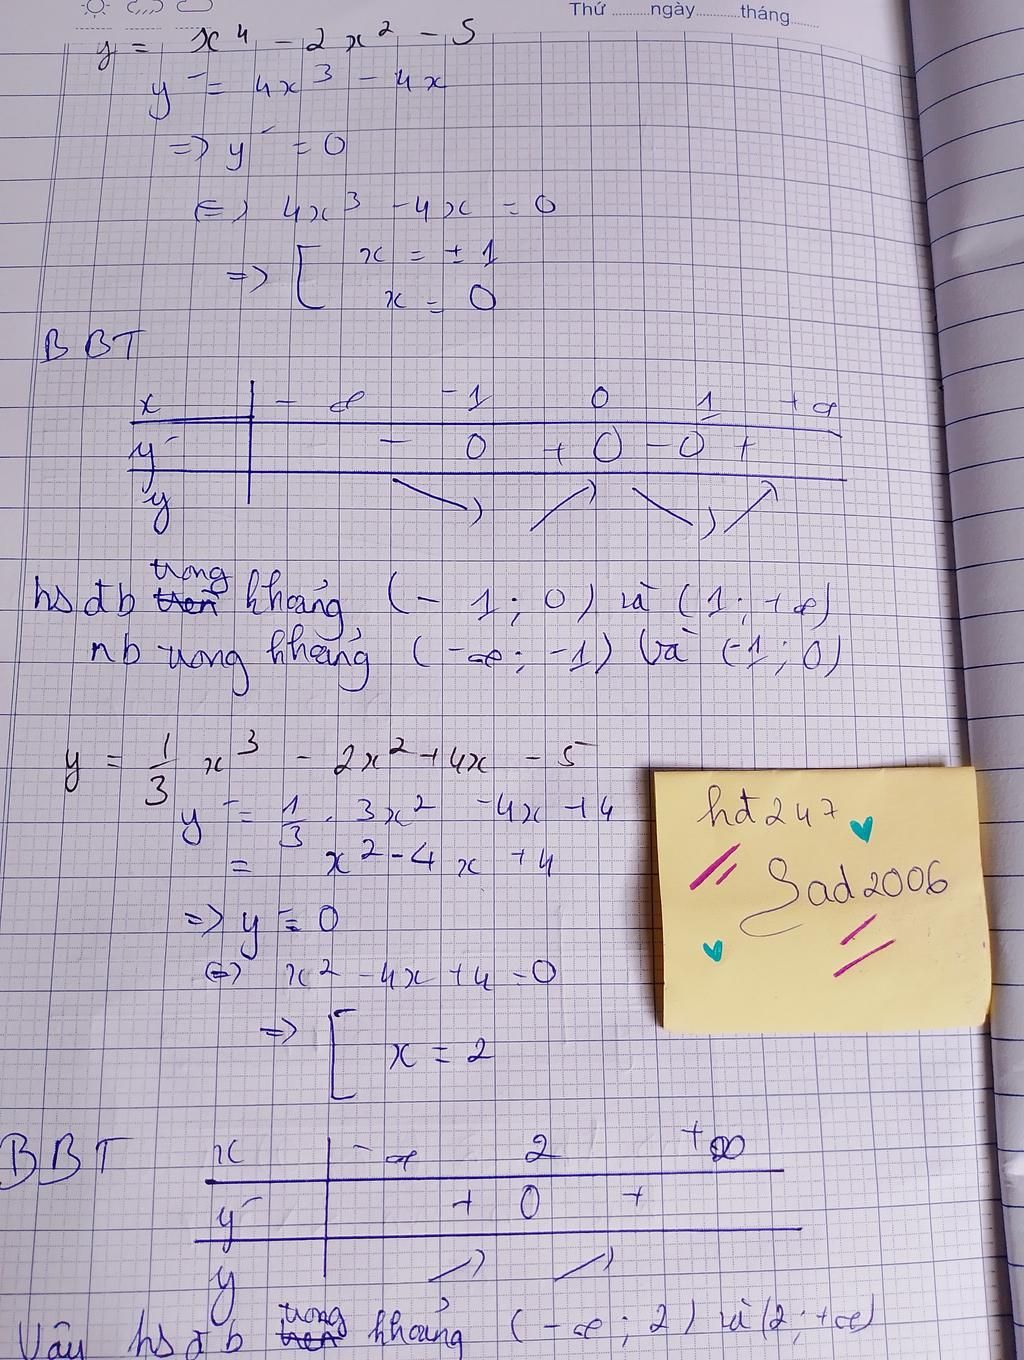 Thứ ..........ngày...........tháng.......
y = x⁴ - 2x² - 5
y' = 4x³ - 4x
=> y' = 0
<=> 4x³ - 4x = 0
=> [ x = ± 1
x = 0
BBT
x | - ∞ -1 0 1 + ∞
y' | - 0 + 0 - 0 +
y
hs đb trong khoảng (- 1 ; 0) và (1 ; +∞)
nb trong khoảng (-∞ ; -1) và (-1 ; 0)
y = 1/3 x³ - 2x² + 4x - 5
y' = 1/3 . 3x² - 4x + 4
= x² - 4x + 4
=> y' = 0
<=> x² - 4x + 4 = 0
=> [ x = 2
hđ247
Sad2006
BBT x | - ∞ 2 + ∞
y' | + 0 +
y
Vậy hs đb trong khoảng (- ∞ ; 2) và (2 ; +∞)